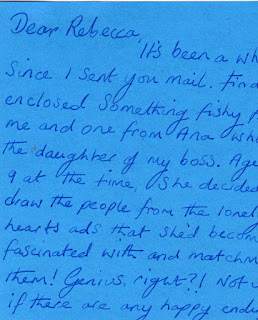 Dear Rebecca,
It's been a wh
Since I sent you mail. Find
enclosed Something fishy f
me and one from Ana who
the daughter of my boss. Age
9 at the time, She decided
draw the people from the lonel
hearts ads that she'd become
fascinated with and matchm
them! Genius, right?! Not s
if there are any happy endi